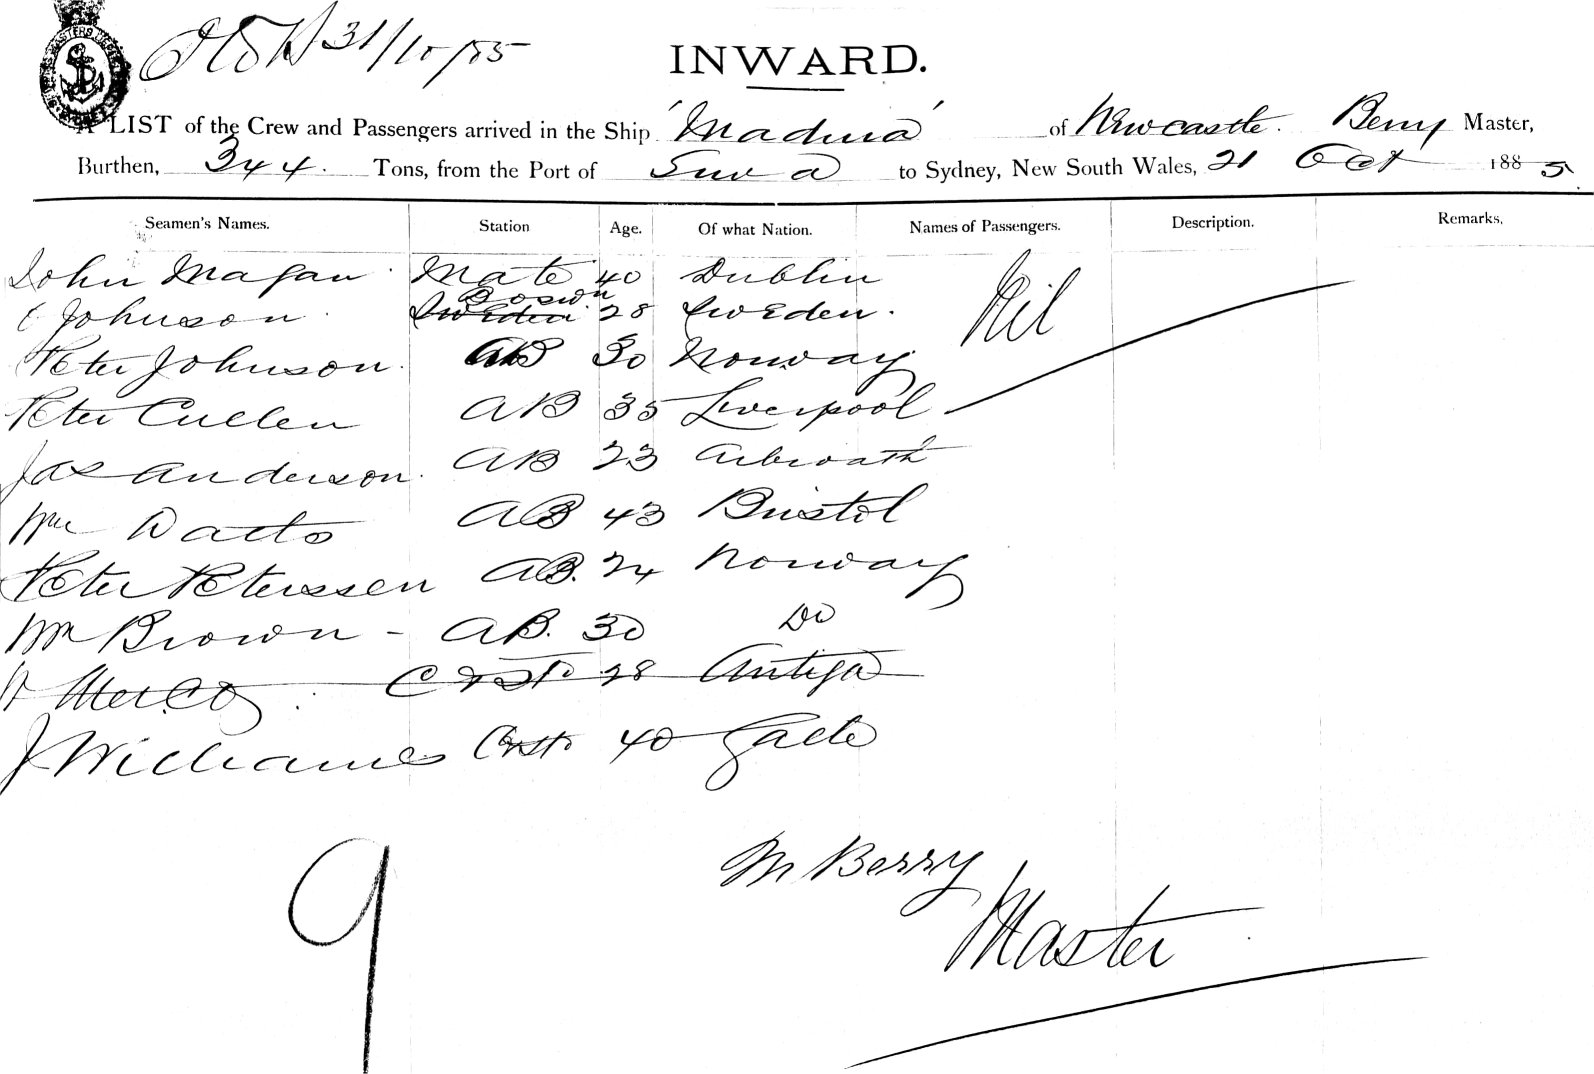 31/10/85
INWARD.
A LIST of the Crew and Passengers arrived in the Ship 'Madura' of Newcastle. Berry Master,
Burthen, 344. Tons, from the Port of Suva to Sydney, New South Wales, 21 Oct 1885.
Seamen's Names. Station Age. Of what Nation. Names of Passengers. Description. Remarks.
John Magan Mate 40 Dublin Nil
C Johnson Bosun Sweden 28 Sweden.
Peter Johnson AB 30 Norway
Peter Cullen AB 35 Liverpool
Jas Anderson. AB 23 Arbroath
Wm Watts AB 43 Bristol
Peter Peterssen AB. 24 Norway
Wm Brown - AB. 30 Do
28 Antiga
J Williams 40
9
M Berry
Master